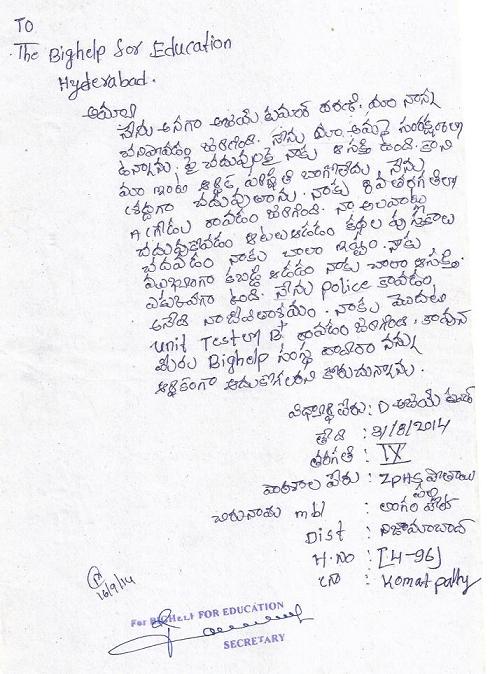 TO
The Bighelp for Education
Hyderabad.
నేను అనగా అజయ్ కుమార్ మా నాన్న
చనిపోవడం జరిగింది. నేను మా అమ్మ సంరక్షణలో
ఉన్నాను. పై చదువులకై నాకు ఆసక్తి ఉంది. కాని
మా ఇంటి ఆర్థిక పరిస్థితి బాగోలేదు. నేను
శ్రద్ధగా చదువుతాను. నాకు 8వ తరగతిలో
A గ్రేడు రావడం జరిగింది. నా అలవాట్లు
చదువుకోవడం ఆటలు ఆడడం కథల పుస్తకాలు
చదవడం నాకు చాలా ఇష్టం. నాకు
ముఖ్యంగా కబడ్డీ ఆడడం నాకు చాలా ఆసక్తి
ఎక్కువగా ఉంది. నేను police కావడం
అనేది నా జీవితాశయం. నాకు మొదటి
unit Test లో B+ రావడం జరిగింది. కావున
మీరు Bighelp సంస్థ ద్వారా నన్ను
ఆర్థికంగా ఆదుకోగలరని కోరుచున్నాను.
విద్యార్థి పేరు: D అజయ్ కుమార్
తేది : /8/2014
తరగతి : IX
పాఠశాల పేరు : ZPHS
చిరునామ mbl :
Dist : నిజామాబాద్
H.no : [4-96]
: Komatpally
16/9/14
For BIGHELP FOR EDUCATION
SECRETARY